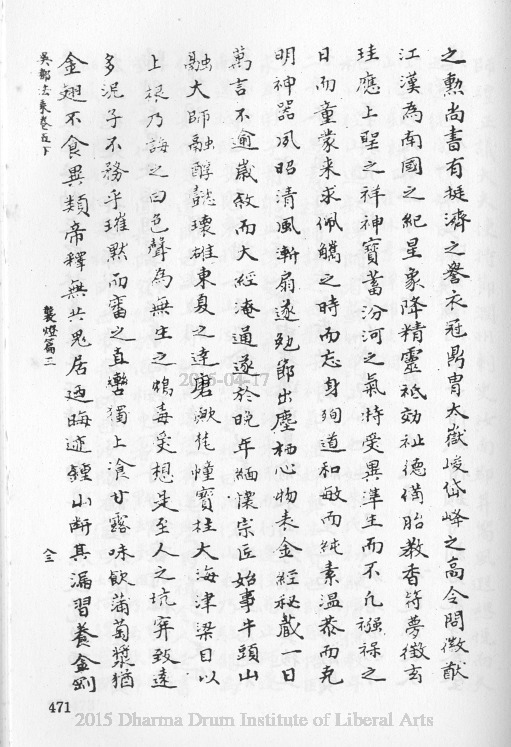 之勳尚書有挺濟之譽衣冠鼎胄太嶽峻岱峰之高令問徽猷
江漢為南國之紀星象降精靈祗効祉德備胎教香符夢徵玄
珪應上聖之祥神寶蓄汾河之氣特受異準生而不凡襁褓之
日而童蒙來求佩觿之時而忘身殉道和敏而純素溫恭而克
明神器夙昭清風漸扇遂勉節出塵栖心物表金經秘藏一日
萬言不逾歲敘而大經淹通遂於晚年緬懷宗匠始事牛頭山
融大師融醇懿瓌雄東夏之達磨歟梵幢寶柱大海津梁目以
上根乃誨之曰色聲為無生之鴆毒受想是至人之坑穽致遠
多泥子不務乎璀默而審之直轡獨上飡甘露味飲蒲萄漿猶
金翅不食異類帝釋無共鬼居迺晦迹鍾山斷其漏習養金剛
吳都法乘卷五下
襲燈篇二
八三
471
2015-04-17
2015 Dharma Drum Institute of Liberal Arts